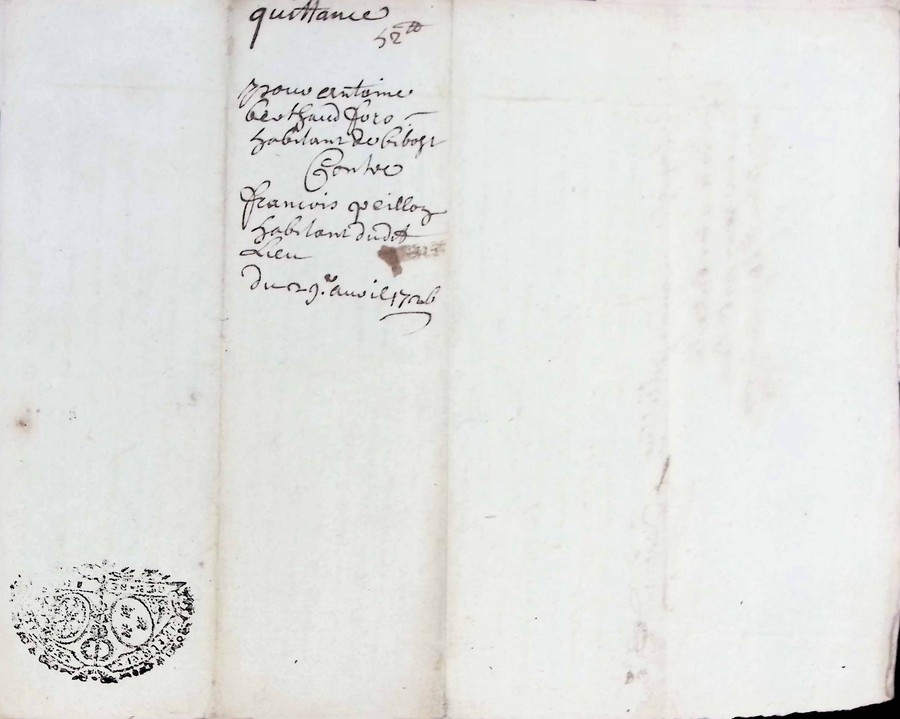 quittance
52tt
pour antoine
berthaud foro
habitant de bibost
Contre
francois peilloz
habitant dudt
Lieu
du 29e. avril 1726